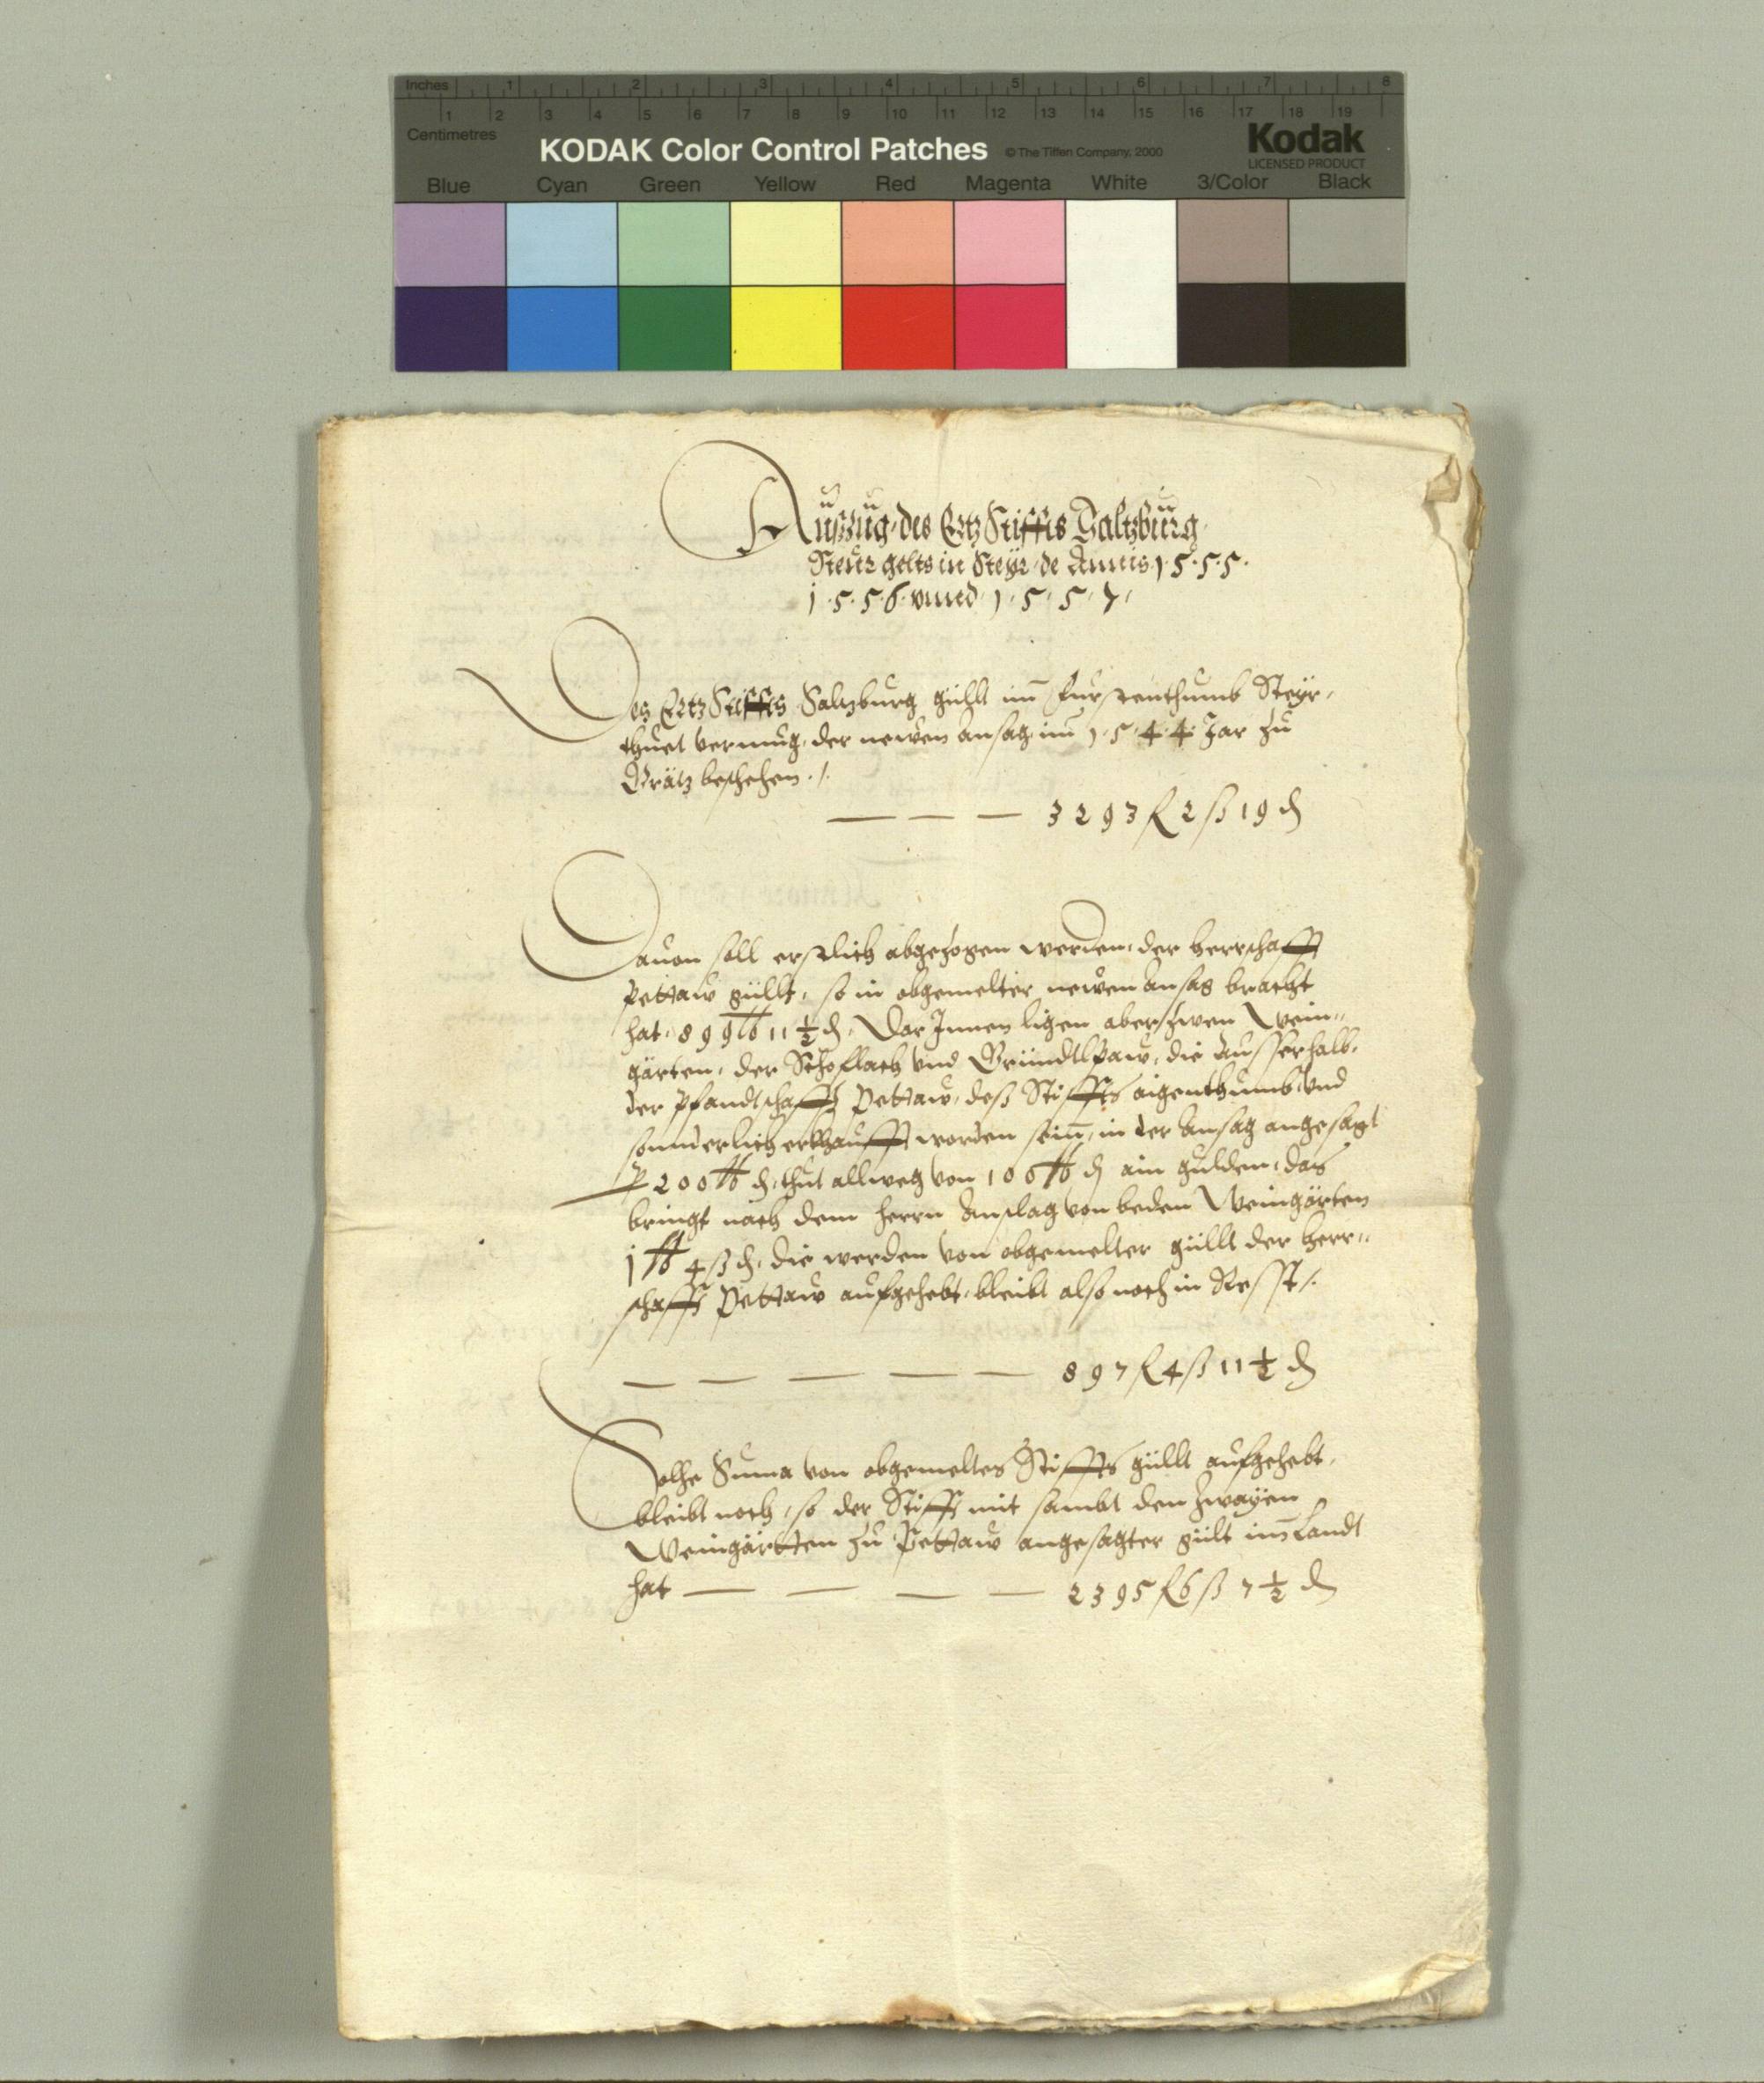 Inches 1 2 3 4 5 6 7 8
1 2 3 4 5 6 7 8 9 10 11 12 13 14 15 16 17 18 19
Centimetres
KODAK Color Control Patches © The Tiffen Company, 2000 Kodak
LICENSED PRODUCT
Blue Cyan Green Yellow Red Magenta White 3/Color Black
Außzug des Ertz Stiffts Saltzburg
Steur gelts in Steyr de Annis 1.5.5.5.
1.5.5.6. vnnd 1.5.5.7.
Des Ertz Stiffts Saltzburg güllt im Furstenthumb Steyr,
thuet vermug der newen ansag im 1.5.4.4. Jar zu
Grätz beschehen ./.
— — — 3293 ℔ 2 ß 19 ₰
Dauon soll erstlich abgezogen werden, der herrschafft
Pettaw güllt, so in obgemelter newen Ansag bracht
hat, 899 ℔ 11½ ₰. Dar Innen ligen aber zwen Wein=
gärten, der und die ausserhalb
der Pfandtschafft Pettaw, deß Stiffts aigenthumb, vnd
sonnderlich erkhaufft worden sein, in der Ansag angesagt
p 200 ℔ ₰, thut allweg von 100 ℔ ₰ ain gulden, das
bringt nach dem herrn Anslag von beden Weingärten
1 ℔ 4 ß ₰, die werden von obgemelter güllt der herr=
schafft Pettaw aufgehebt, bleibt also noch in Resst /.
— — — — — 897 ℔ 4 ß 11½ ₰
Solhe Suma von obgemeltes Stiffts güllt aufgehebt,
bleibt noch, so der Stifft mit sambt den zwayen
Weingärtten zu Pettaw angesagter gült im Landt
hat — — — — 2395 ℔ 6 ß 7½ ₰